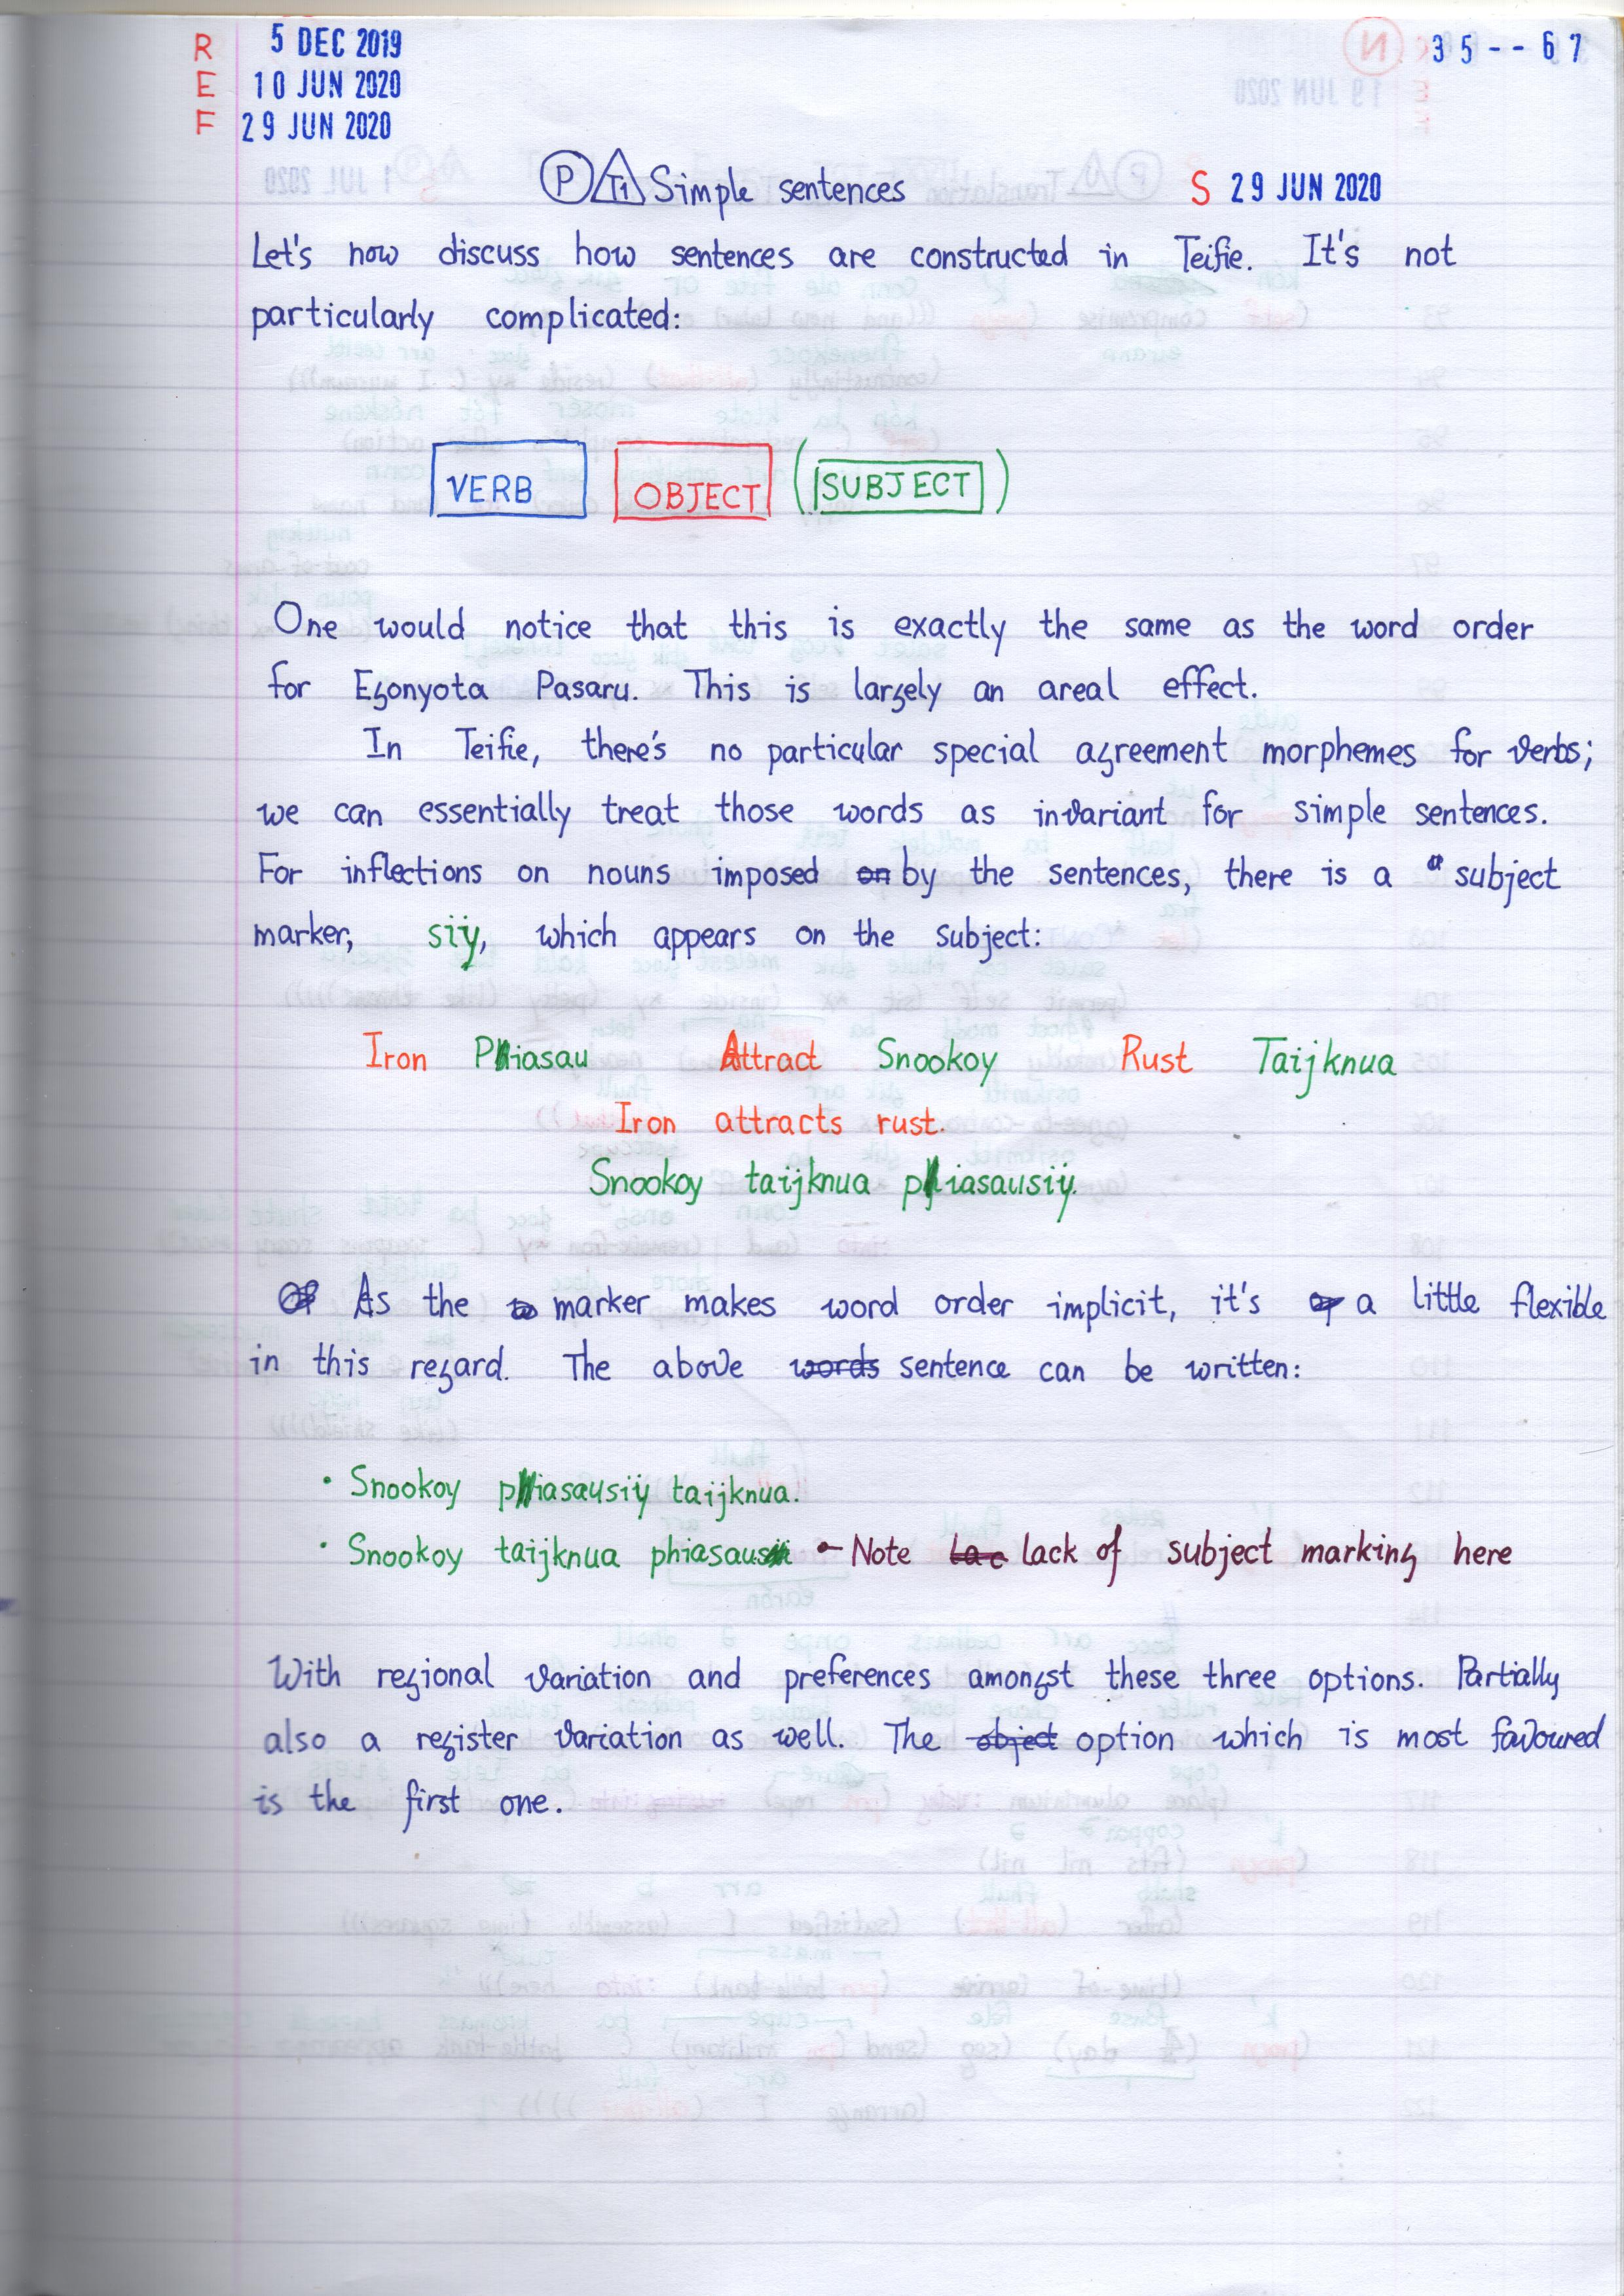 R 5 DEC 2019
E 10 JUN 2020
F 29 JUN 2020
35--67
P T1 Simple sentences S 29 JUN 2020
Let's now discuss how sentences are constructed in Teifie. It's not
particularly complicated:
VERB OBJECT (SUBJECT)
One would notice that this is exactly the same as the word order
for Egonyota Pasaru. This is largely an areal effect.
In Teifie, there's no particular special agreement morphemes for verbs;
we can essentially treat those words as invariant for simple sentences.
For inflections on nouns imposed on by the sentences, there is a subject
marker, siÿ, which appears on the subject:
Iron Phiasau Attract Snookoy Rust Taijknua
Iron attracts rust.
Snookoy taijknua phiasausiÿ.
As the marker makes word order implicit, it's a little flexible
in this regard. The above words sentence can be written:
• Snookoy phiasausiÿ taijknua.
• Snookoy taijknua phiasau - Note lac lack of subject marking here
With regional variation and preferences amongst these three options. Partially
also a register variation as well. The object option which is most favoured
is the first one.